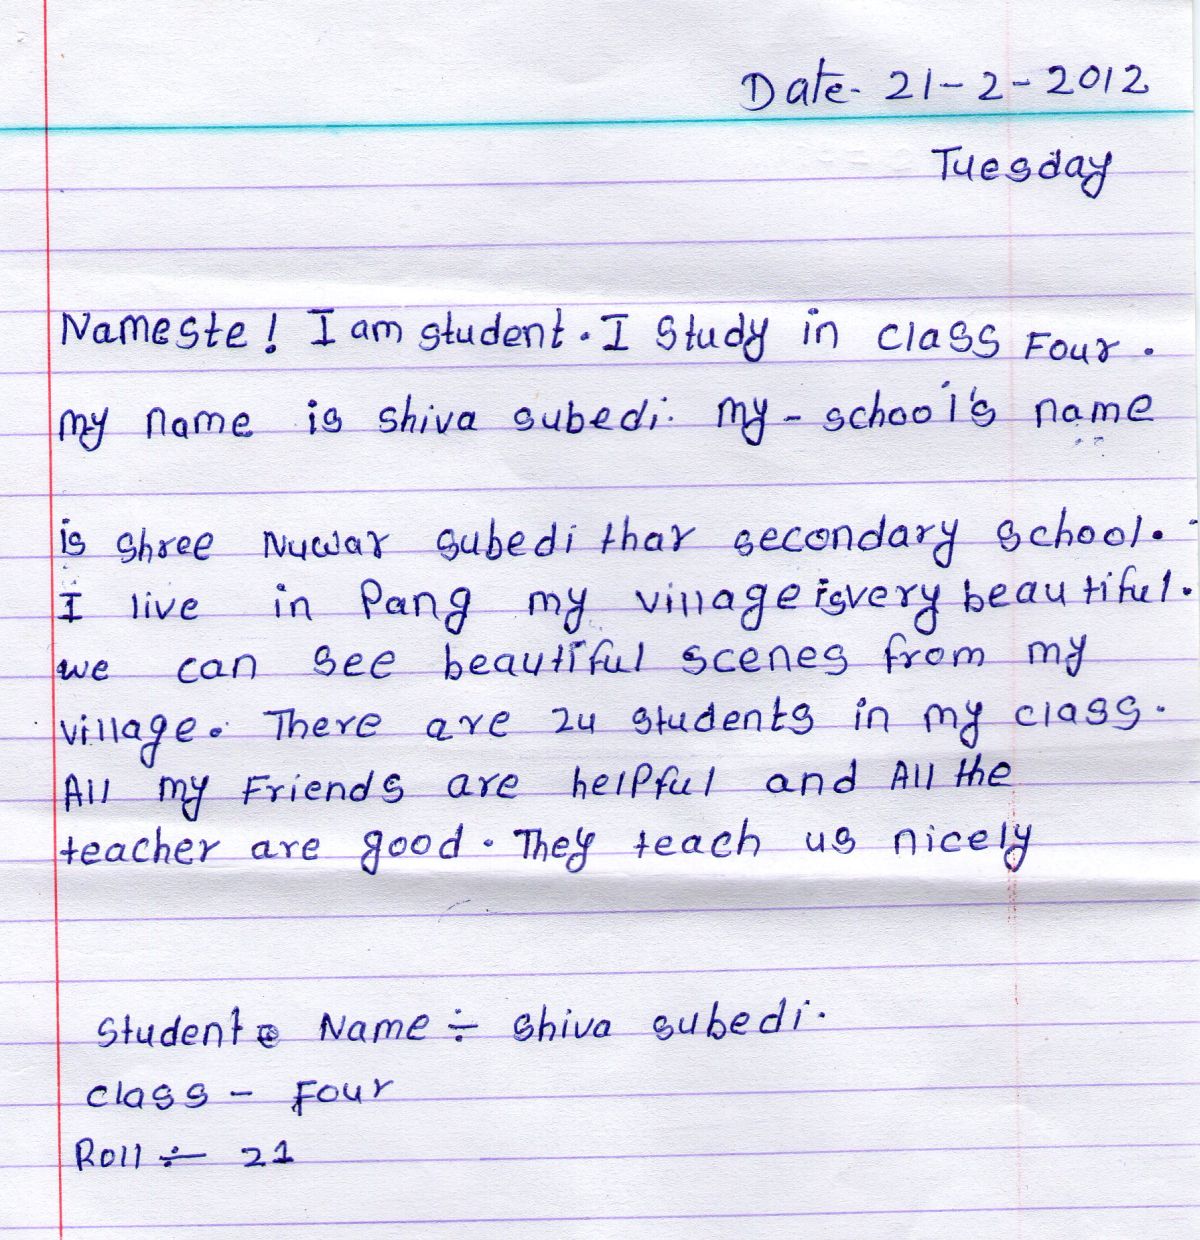 Date- 21-2-2012
Tuesday
Nameste! I am student. I study in class Four.
my name is shiva subedi. my - school's name
is shree Nuwar subedi thar secondary school.
I live in Pang my village is very beautiful.
we can see beautiful scenes from my
village. There are 24 students in my class.
All my Friends are helpful and All the
teacher are good. They teach us nicely
Student Name ÷ shiva subedi.
class - Four
Roll ÷ 21